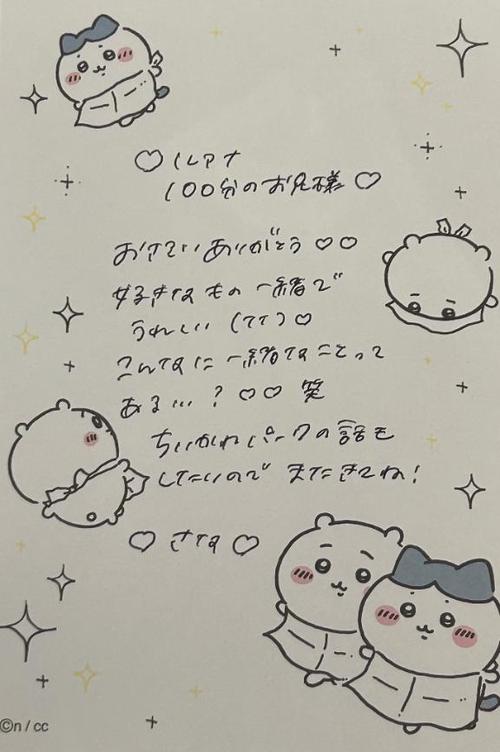 ♡ ルアナ
100分のお兄様 ♡
おさそいありがとう ♡♡
好きなもの一緒で
うれしい (TT) ♡
こんなに一緒なことって
ある…? ♡♡ 笑
ちいかわパークの話も
したいので またきてね!
♡ さな ♡
©n / cc